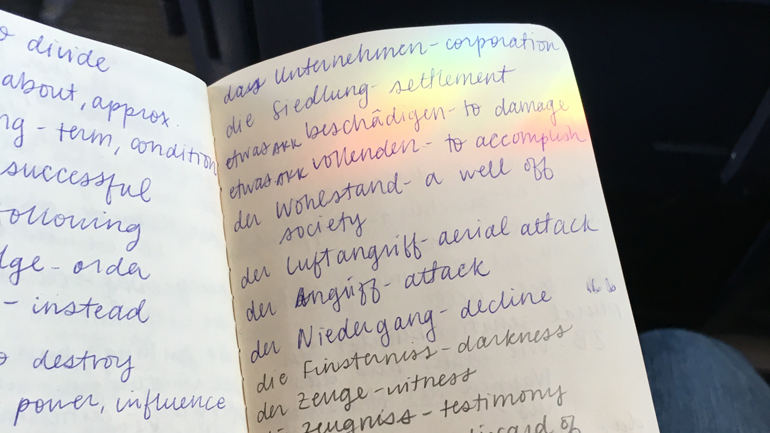 divide
about, approx.
- term, condition
successful
following
- order
- instead
destroy
power, influence
das Unternehmen - corporation
die Siedlung - settlement
etwas AKK beschädigen - to damage
etwas AKK vollenden - to accomplish
der Wohlstand - a well off
society
der Luftangriff - aerial attack
der Angriff - attack
der Niedergang - decline
die Finsterniss - darkness
der Zeuge - witness
zeugniss - testimony